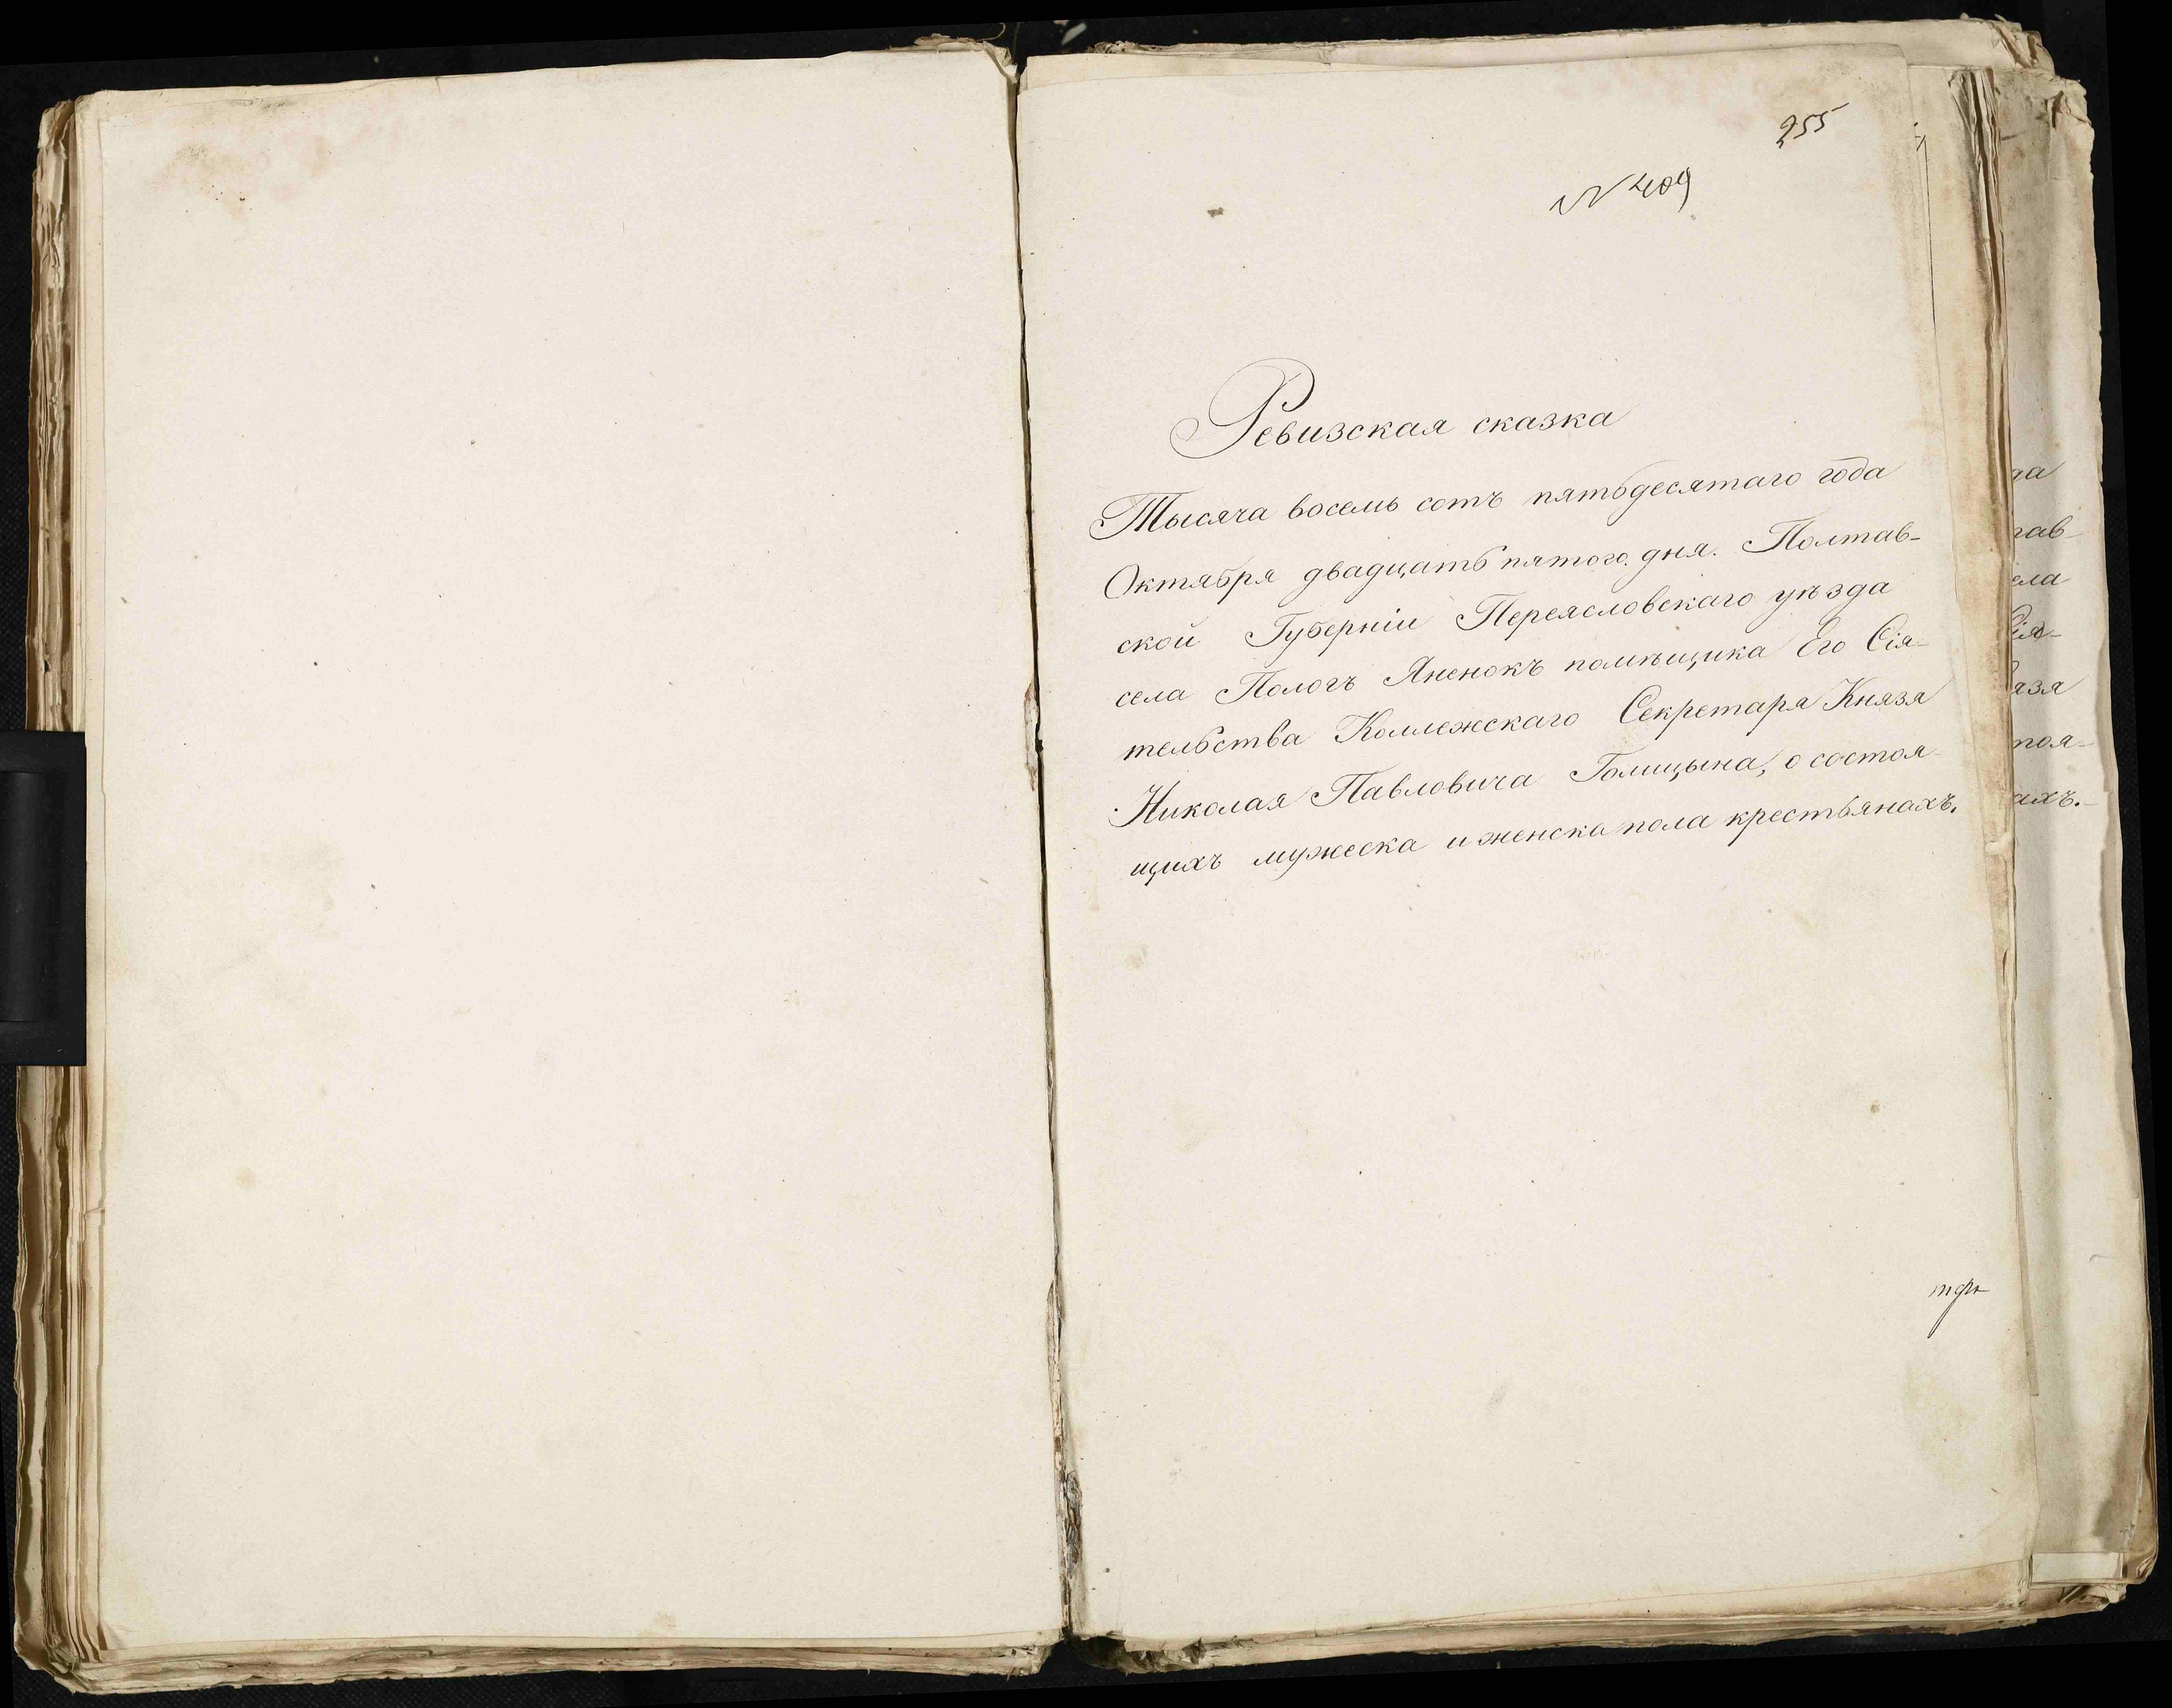 255
N 409
Ревизская сказка
Тысяча восемь сотъ пятьдесятаго года
Октября двадцать пятого дня. Полтав-
ской Губерніи Переясловскаго уѣзда
села Пологъ Яненокъ помѣщика Его Сія-
тельства Коллежскаго Секретаря Князя
Николая Павловича Голицына, о состоя-
щихъ мужеска и женска пола крестьянахъ.
да
тав
ела
Сія-
язя
тоя-
ахъ.